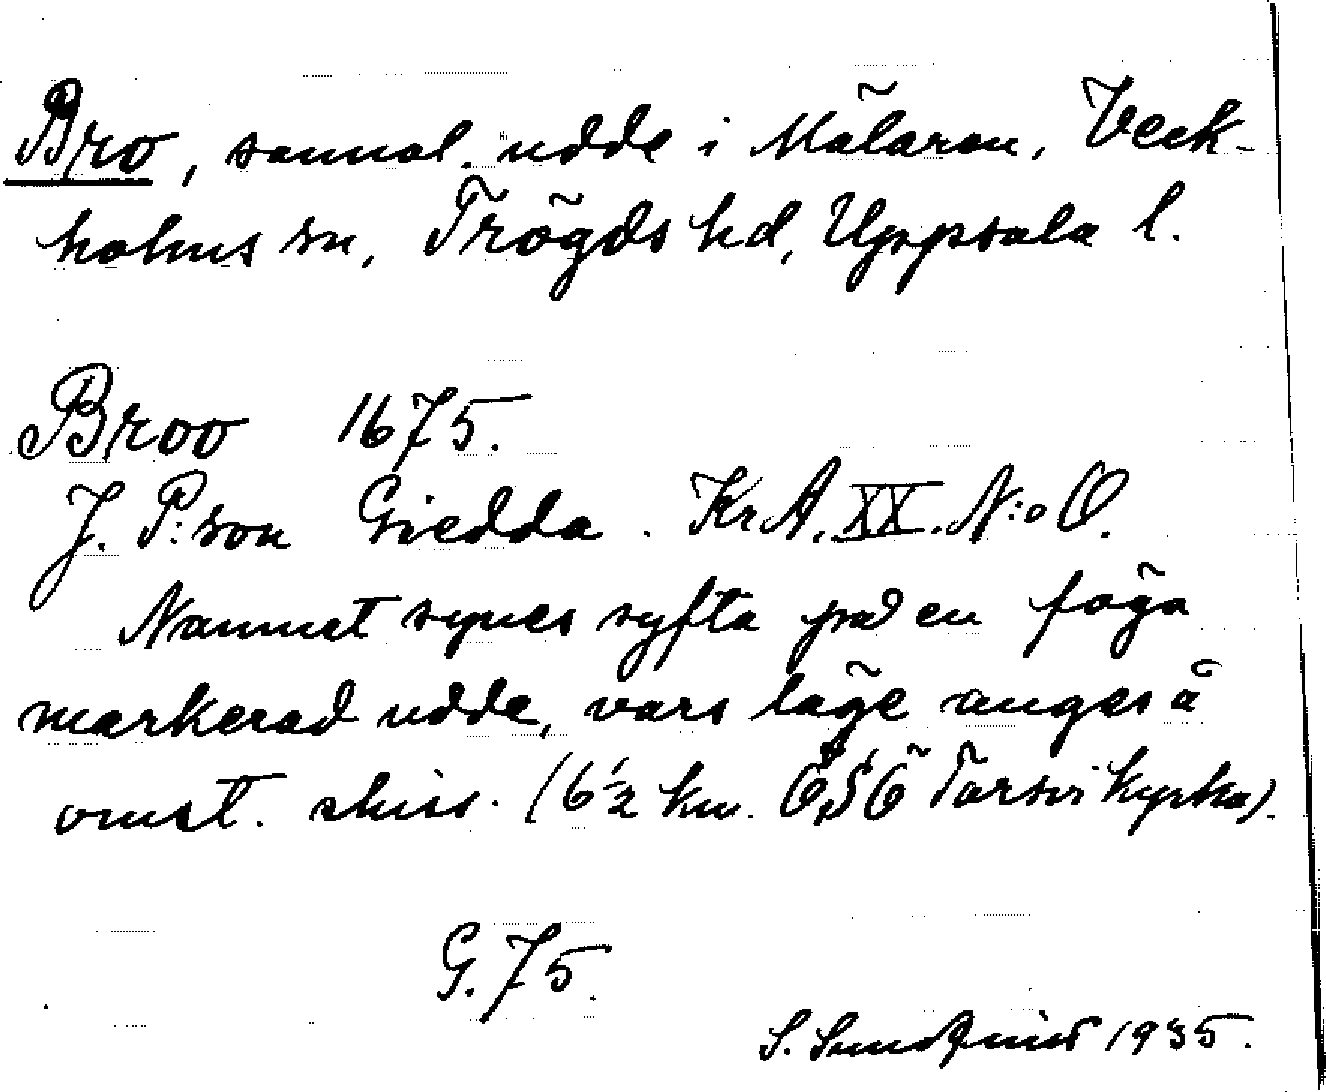 Bro, sannol. udde i Mälaren, Veck-
holms sn, Trögds hd, Uppsala l.
Broo 1675.
J. P:son Giedda. KrA. XX. N:o O.
Namnet synes syfta på en föga
markerad udde, vars läge anges å
omst. skiss. (6 1/2 km. ÖSÖ Torsvi kyrka).
G. 75.
S. Sundquist 1935.